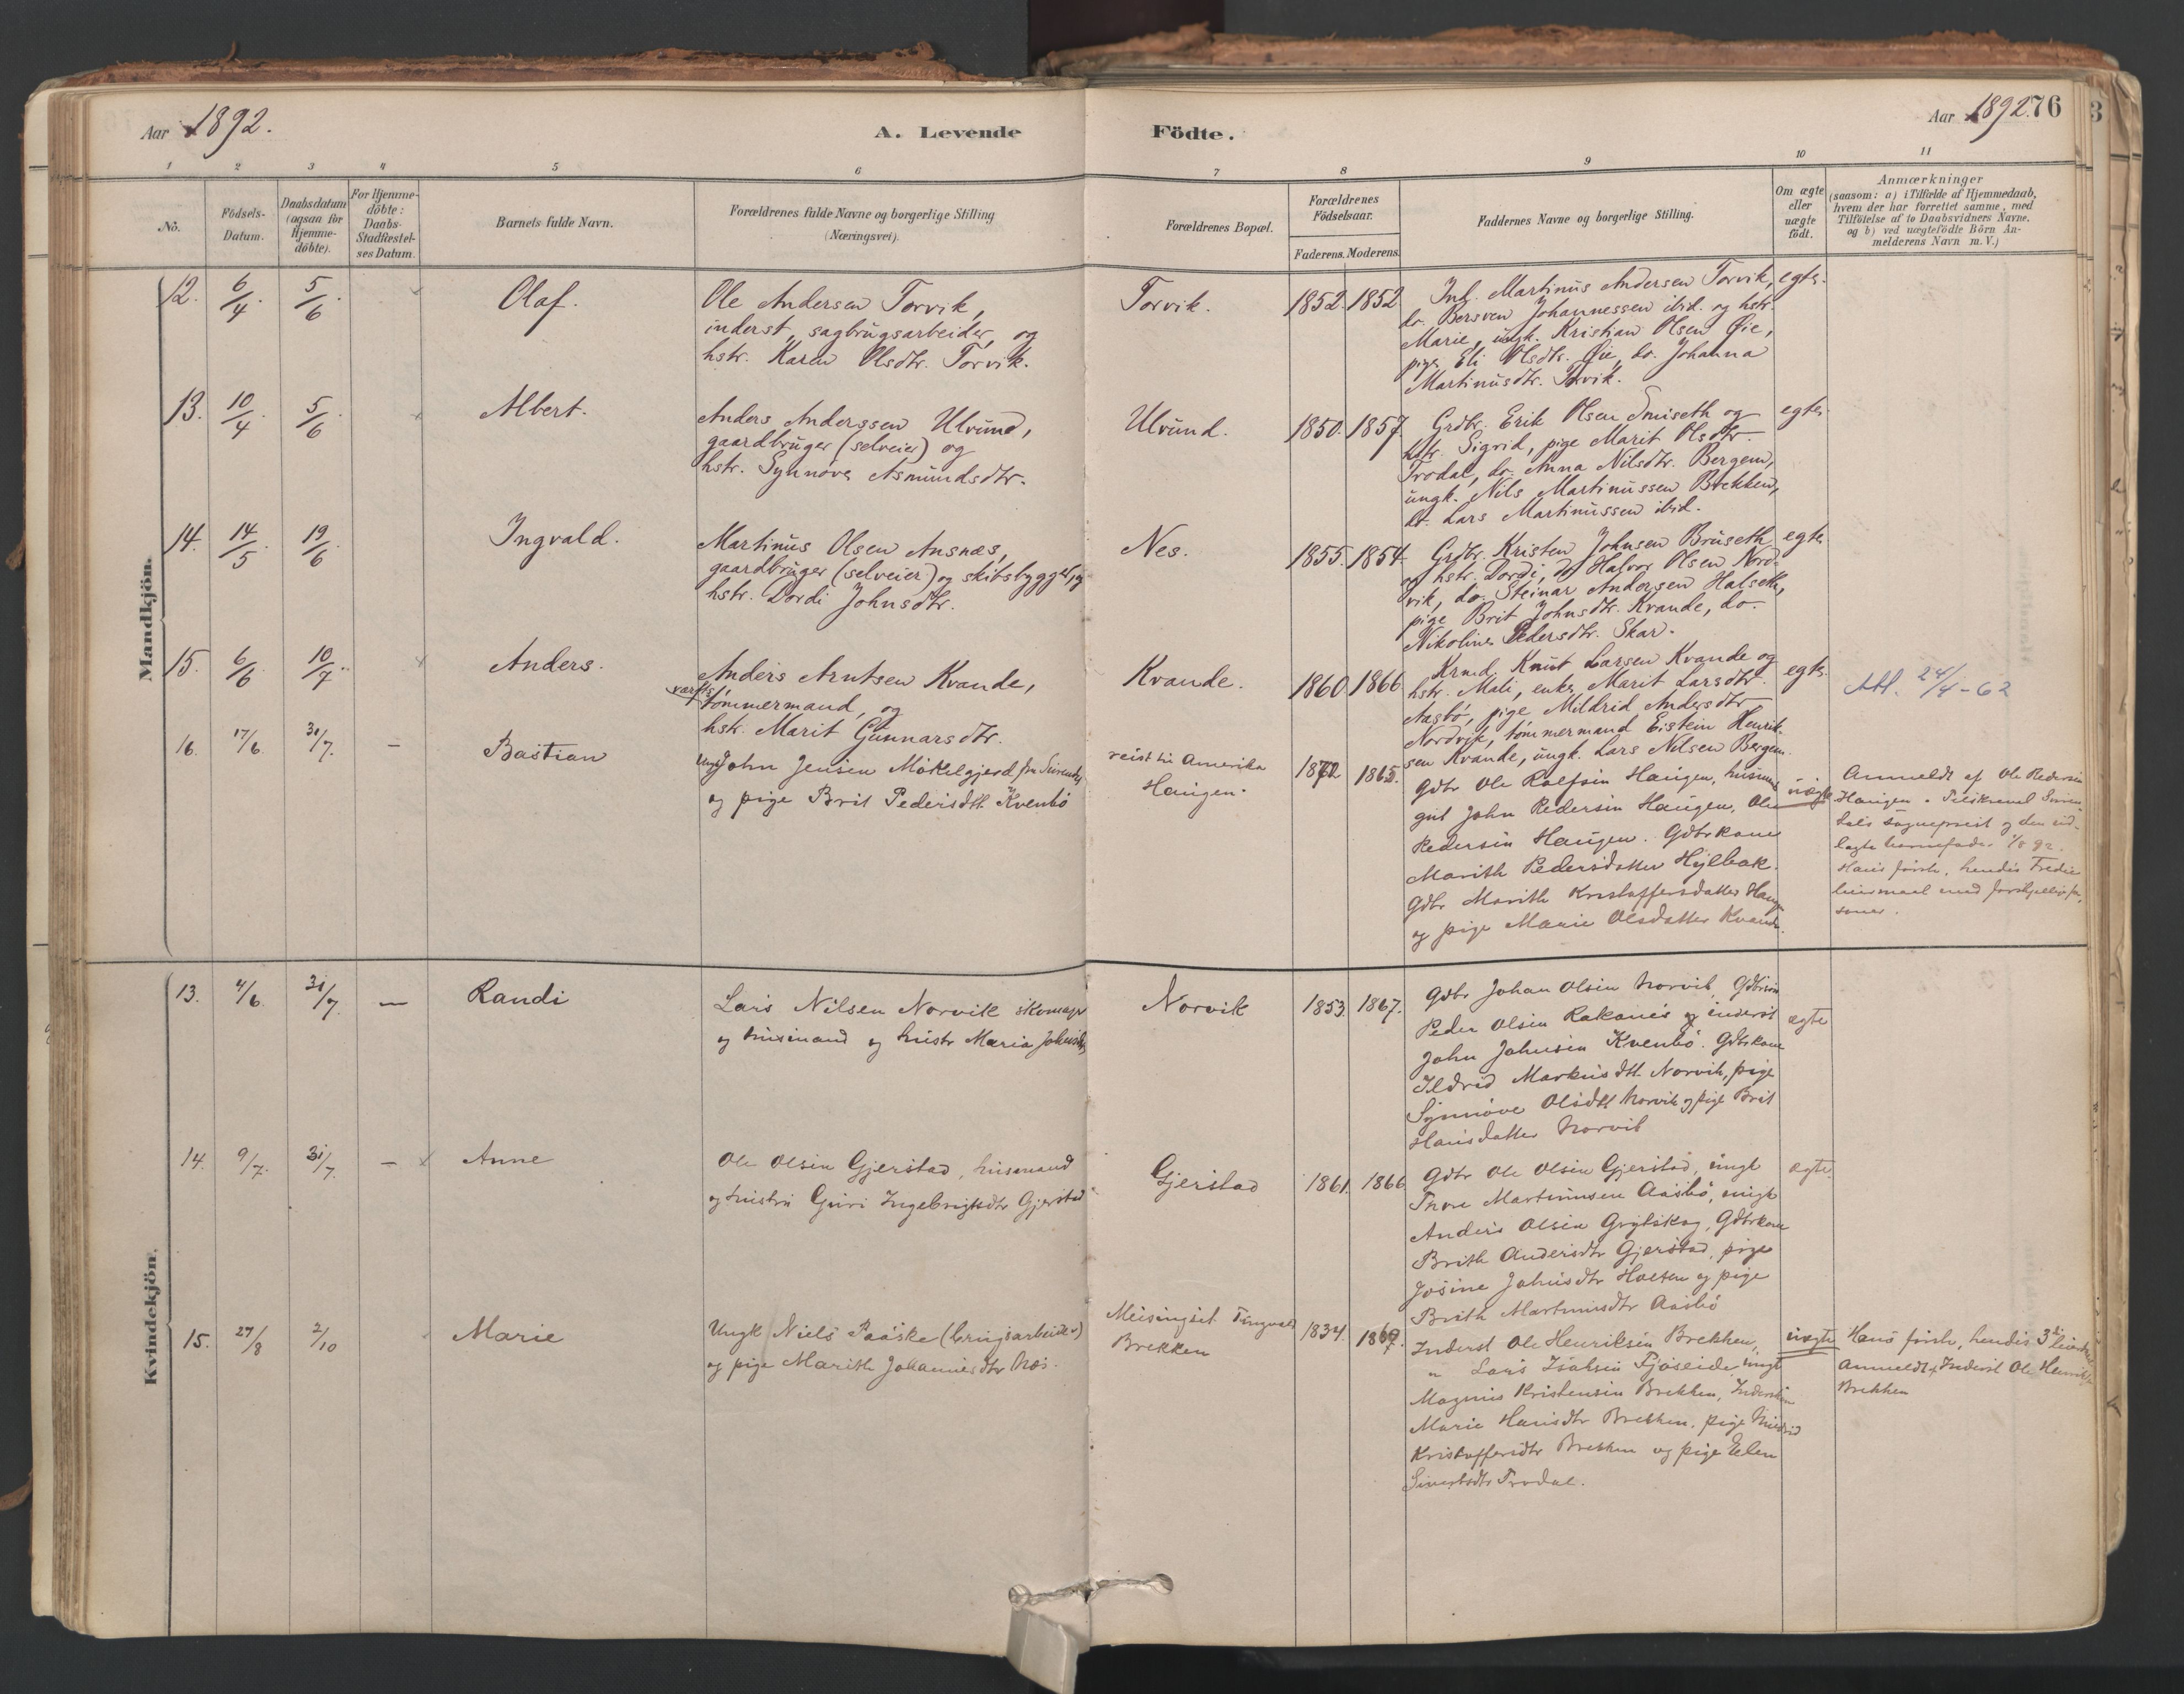 Aar 1892.
A. Levende Födte.
Aar 1892. 76
3
1 2 3 4 5 6 7 8 9 10 11
No.
Födsels-
Datum.
Daabsdatum
(ogsaa for
Hjemme-
döbte).
For Hjemme-
döbte:
Daabs-
Stadfæstel-
ses Datum.
Barnets fulde Navn.
Forældrenes fulde Navne og borgerlige Stilling
(Næringsvei).
Forældrenes Bopæl.
Forældrenes
Födselsaar.
Faderens. Moderens.
Faddernes Navne og borgerlige Stilling.
Om ægte
eller
uægte
födt.
Anmærkninger
(saasom: a) i Tilfælde af Hjemmedaab,
hvem der har forrettet samme, med
Tilföielse af to Daabsvidners Navne.
og b) ved uægtefödte Börn An-
melderens Navn m. V.)
Mandkjön.
12. 6/4. 5/6. Olaf.
Ole Andersen Torvik,
inderst, sagbrugsarbeider, og
hstr. Karen Olsdtr. Torvik.
Torvik. 1852. 1852
Inl. Martinus Andersen Torvik,
do. Bersven Johannessen ibid. og hstr.
Marie, ungk. Kristian Olsen Øie,
pige Eli Olsdtr. Øie, do. Johanna
Martinusdtr. Torvik.
egte.
13. 10/4. 5/6. Albert.
Anders Anderssen Ulvund,
gaardbruger (selveier) og
hstr. Synnöve Asmundsdtr.
Ulvund. 1850. 1857.
Grdbr. Erik Olsen Smiseth og
hstr. Sigrid, pige Marit Olsdtr.
Trodal, do. Anna Nilsdtr. Bergem,
ungk. Nils Martinussen Brekken,
do. Lars Martinussen ibid.
egte.
14. 14/5. 19/6. Ingvald.
Martinus Olsen Ausnæs,
gaardbruger (selveier) og skibsbygger, og
hstr. Dordi Johnsdtr.
Nes. 1855. 1854.
Grdbr. Kristen Johnsen Bruseth
og hstr. Dordi, do Halvor Olsen Nord-
vik, do. Steinar Andersen Halseth,
pige Brit Johnsdtr. Kvande, do.
Nikoline Pedersdtr. Skar.
egte.
15. 6/6. 10/7. Anders.
Anders Arntsen Kvande,
værfts
tömmermand, og
hstr. Marit Gunnarsdtr.
Kvande. 1860. 1866.
Krmd. Knut Larsen Kvande og
hstr. Mali, enke Marit Larsdtr.
Aasbö, pige Mildrid Andersdtr.
Nordvik, tömmermand Eistein Henrik-
sen Kvande, ungk. Lars Nilsen Bergem.
egte.
Att. 24/4-62
16. 17/6. 31/7. – Bastian
Ungk John Jensen Mökelgjerd fra
og pige Brit Pedersdtt. Kvenbö
reist til Amerika
Haugen. 1865.
Gdbr Ole Rolfsen Haugen,
gut John Pedersen Haugen, Ole
Pedersen Haugen. Gdbrkone
Marith Pedersdatter Hylbak.
Gdbr Marith Kristoffersdatter Haugen
og pige Marie Olsdatter Kvande.
uægte
Anmeldt af Ole Pedersen
Haugen. Tilskrevet
sogneprest og den ud-
lagte barnefader 1/8 92.
Hans første, hendes Tredie
leiermaal med forskjellige per-
soner.
Kvindekjön.
13. 4/6. 31/7. – Randi
Lars Nilsen Norvik skomager
og husmand og hustr Maria
Norvik 1853. 1867.
Gdbr Johan Olsen Norvik, Gdbrsön
Peder Olsen Rakanes og inderst
John Johnsen Kvenbö. Gdbrkone
Ildrid Markusdtt. Norvik, pige
Synnöve Olsdtt Norvik og pige Brit
Hansdatter Norvik
ægte
14. 9/7. 31/7. – Anne
Ole Olsen Gjerstad, husmand
og hustru Guri Ingebrigtsdtr Gjerstad
Gjerstad 1861. 1866
Gdbr Ole Olsen Gjerstad, ungk
Tore Martinusen Aasbö, ungk
Anders Olsen Grytskog, Gdbrkone
Brith Andersdtr Gjerstad, pige
Josine Johnsdtr Holten og pige
Brith Martinusdtr Aasbö
ægte.
15. 27/8 2/10 Marie
Ungk Niels Paaske (brugsarbeider)
og pige Marith Johannesdtr Næs.
Meisingset Tingvold
Brekken 1834.
Inderst Ole Henriksen Brekken,
" Lars Isaksen Fjöseide, ungk
Magnus Kristensen Brekken,
Marie Hansdtr Brekken, pige
Kristoffersdtr Brekken og pige Elen
Sivertsdtr Trodal.
uægte
Hans første, hendes 3die
Anmeldt af Inderst Ole Henriksen
Brekken